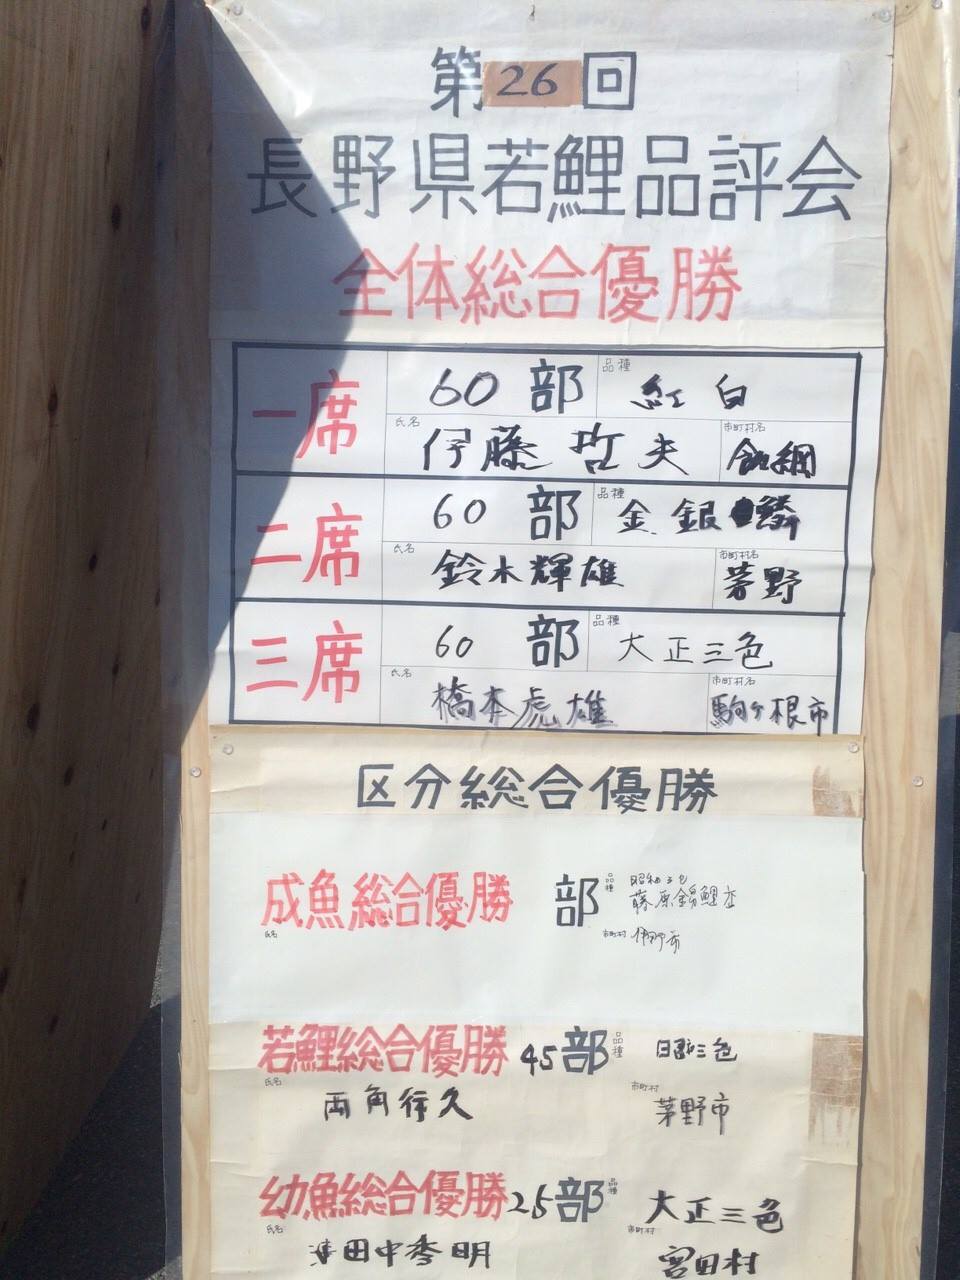 第26回
長野県若鯉品評会
全体総合優勝
一席 60 部 品種 紅白
氏名 伊藤哲夫 市町村名 飯綱
二席 60 部 品種 金銀鱗
氏名 鈴木輝雄 市町村名 茅野
三席 60 部 品種 大正三色
氏名 橋本虎雄 市町村名 駒ヶ根市
区分総合優勝
成魚総合優勝 部 品種 昭和三色
藤原錦鯉店
氏名 市町村
若鯉総合優勝 45部 品種 昭和三色
氏名 両角行久 市町村 茅野市
幼魚総合優勝 25部 品種 大正三色
氏名 田中秀明 市町村 宮田村